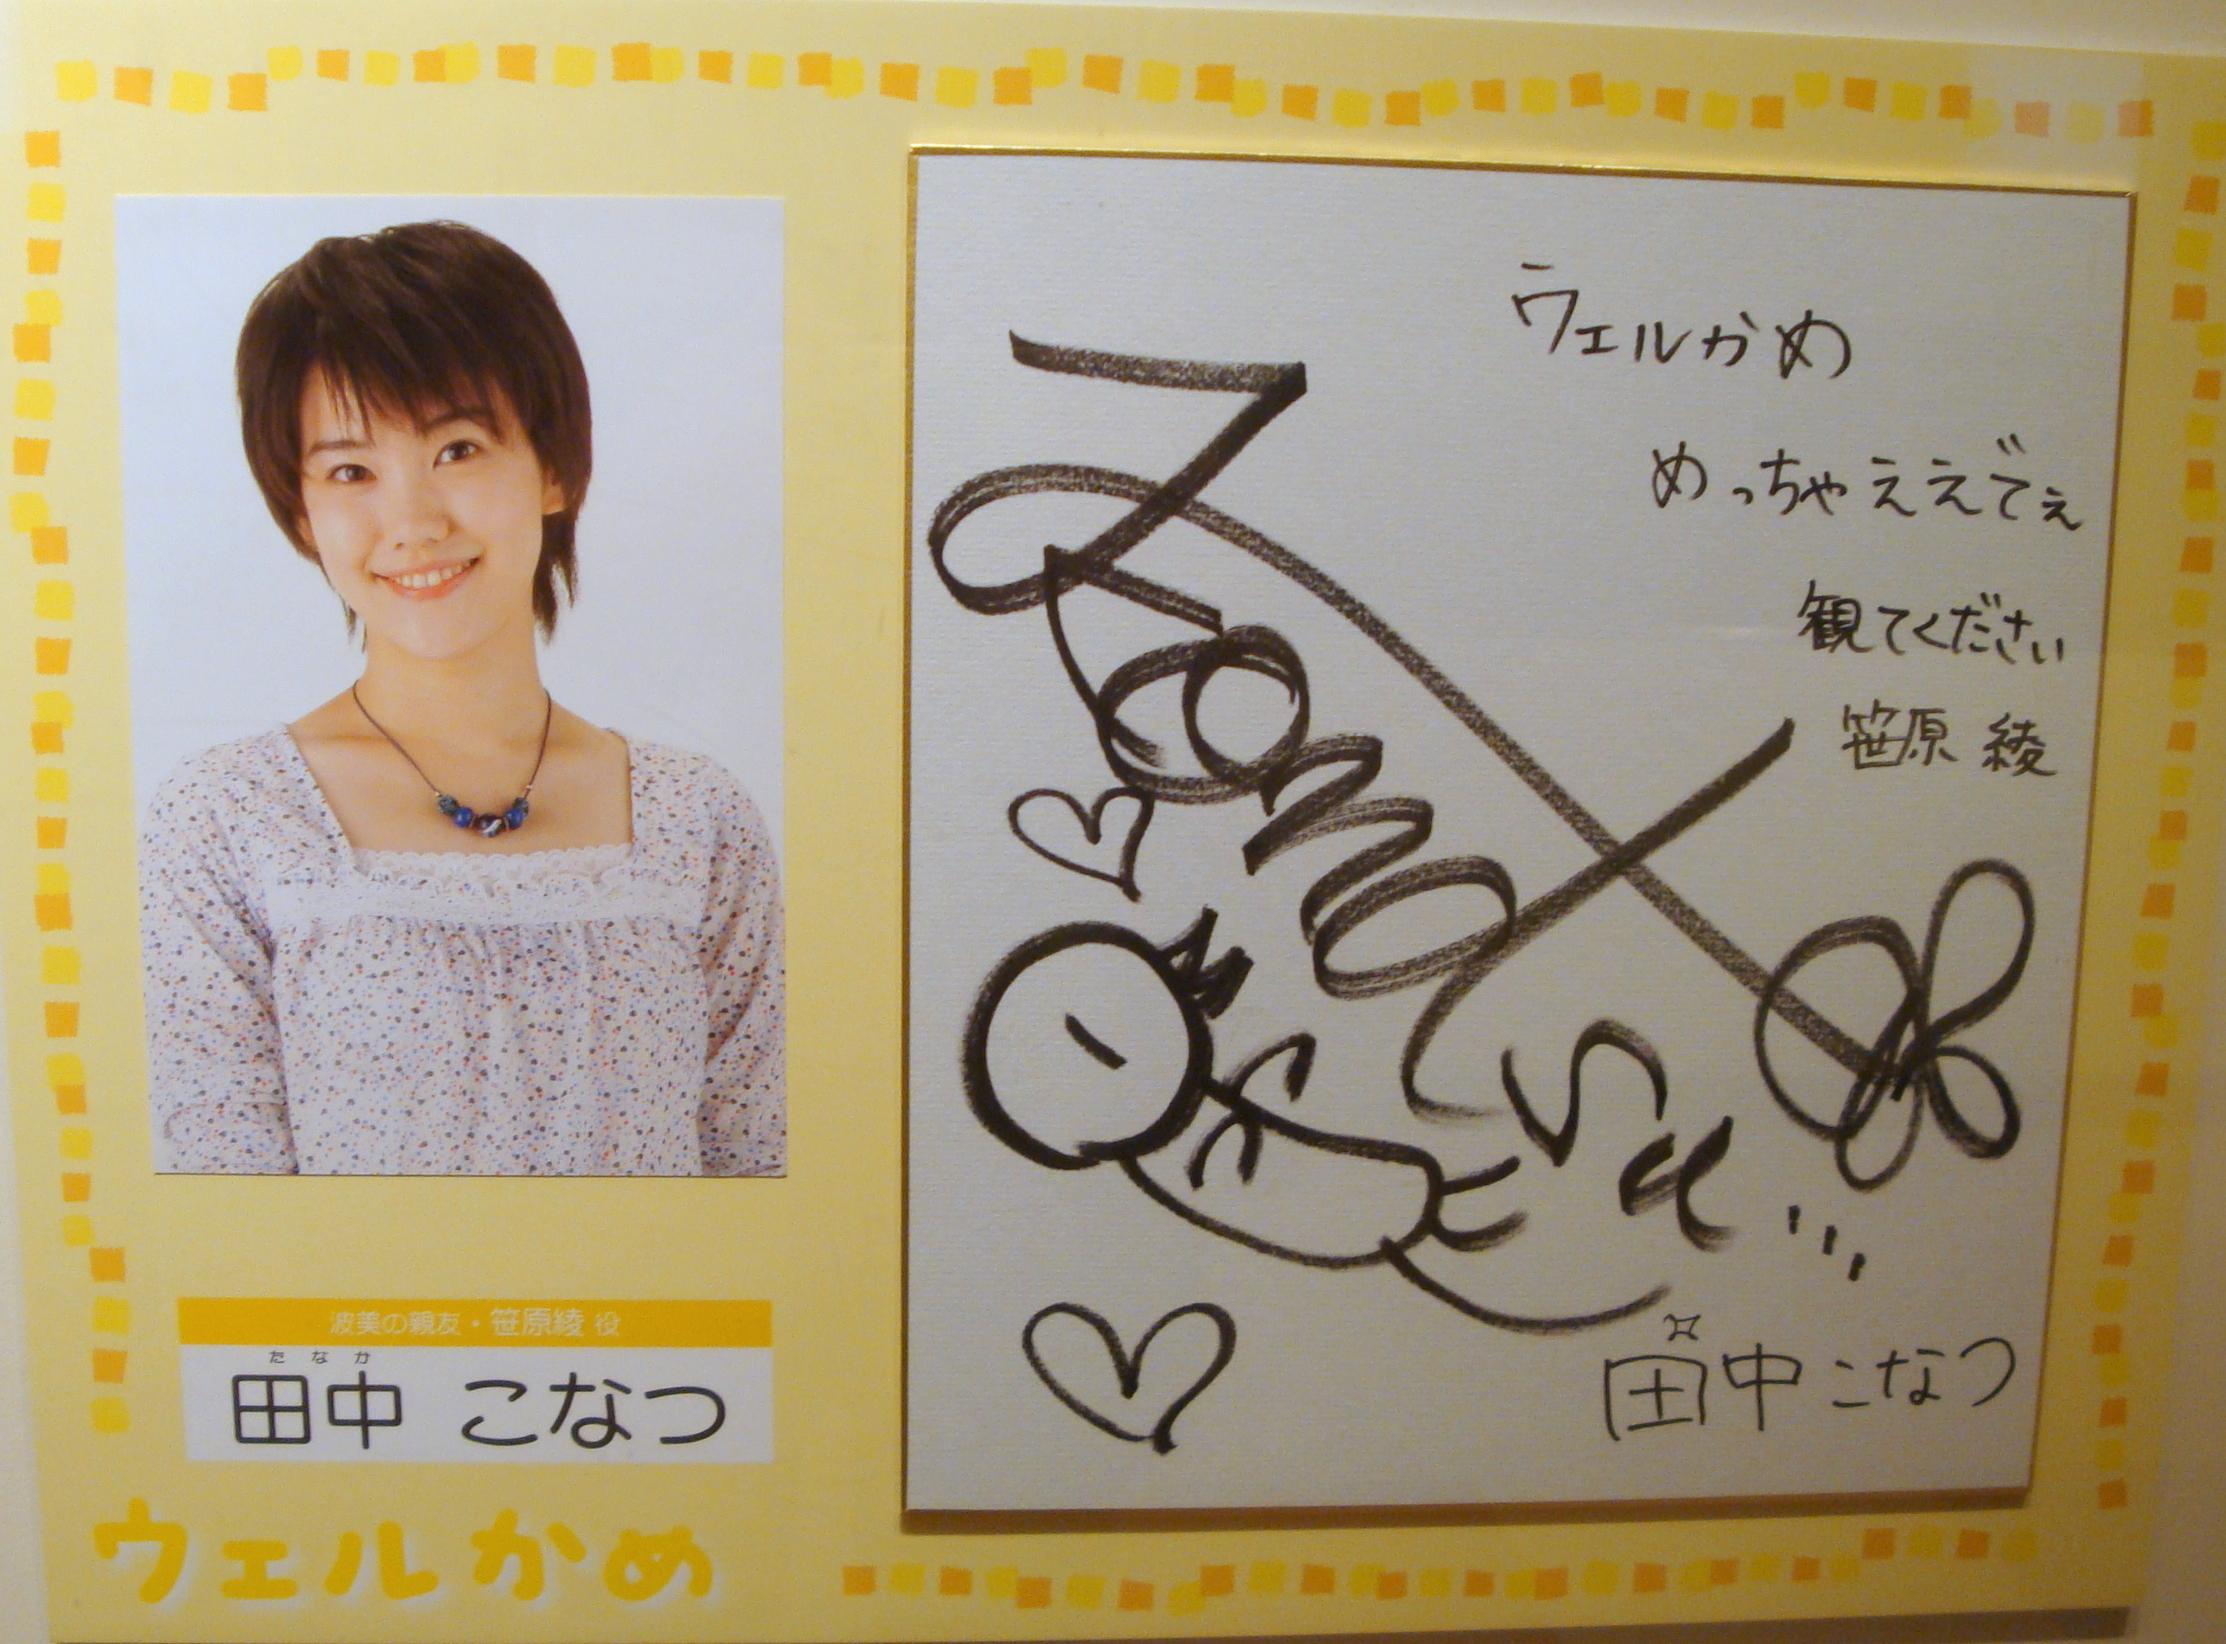 ウェルかめ
めっちゃええでぇ
観てください
笹原 綾
田中こなつ
波美の親友・笹原綾 役
たなか
田中 こなつ
ウェルかめ